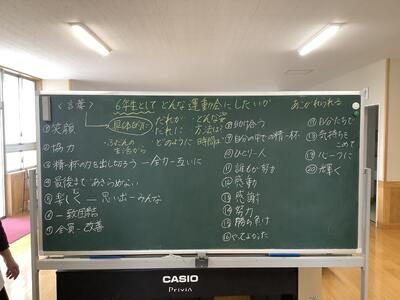 6年生としてどんな運動会にしたいか
あこがれられる
〈言葉〉
具体的に
だれが どんな
だれに 方法は?
どのように 時間は
ふだんの
生活から
①笑顔
②協力
③精一杯の力を出し切ろう ― 全力 ― 互いに
④最後まであきらめない
⑤楽しく ― 思い出 ― みんな
⑥一致団結
⑦全員 ― 改善
⑧助け合う
⑨自分の中での精一杯
⑩ひとり一人
⑪誰もが
⑫感動
⑬感謝
⑭努力
⑮勝ち負け
⑯やってよかった
⑰自分たちで
⑱気持ちを
こめて
⑳輝く
CASIO
Privia